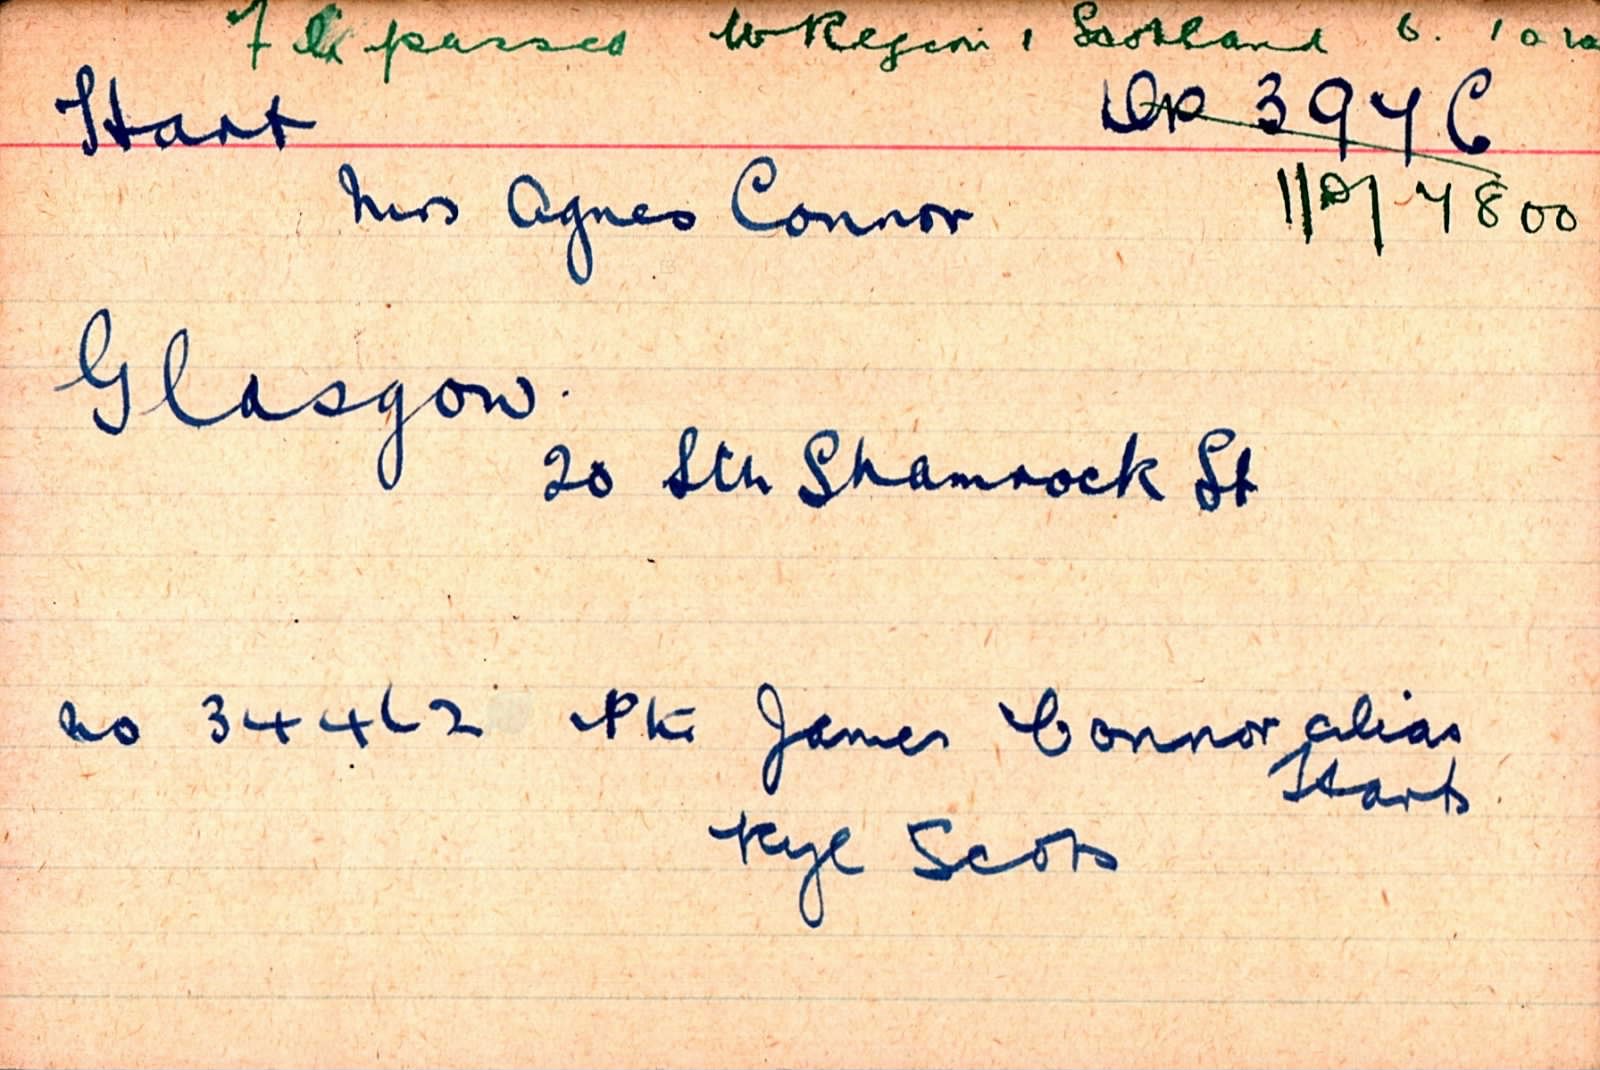 passed W Region, Scotland 6.
Hart
DR 394C
Mrs Agnes Connor
11/D/ 4800
Glasgow.
20 Sth Shamrock St
No 34462 Pte James Connor alias
Hart
Ryl Scots